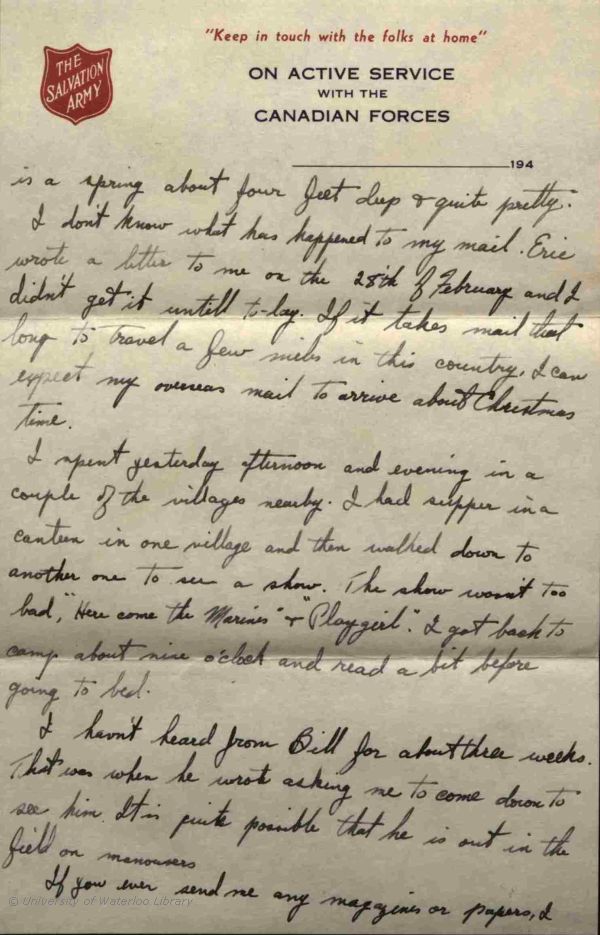 "Keep in touch with the folks at home"
THE
SALVATION
ARMY
ON ACTIVE SERVICE
WITH THE
CANADIAN FORCES
194
is a spring about four feet deep & quite pretty.
I don't know what has happened to my mail. Eric
wrote a letter to me on the 28th of February and I
didn't get it untill to-day. If it takes mail that
long to travel a few miles in this country, I can
expect my overseas mail to arrive about Christmas
time.
I spent yesterday afternoon and evening in a
couple of the villages nearby. I had supper in a
canteen in one village and then walked down to
another one to see a show. The show wasn't too
bad, "Here come the Marines" & "Playgirl". I got back to
camp about nine o'clock and read a bit before
going to bed.
I havn't heard from Bill for about three weeks.
That was when he wrote asking me to come down to
see him. It is quite possible that he is out in the
field on manouvers
If you ever send me any magazines or papers, I
© University of Waterloo Library